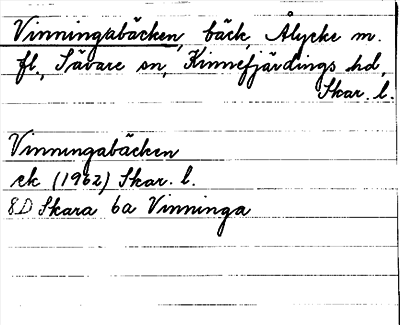 Vinningabäcken, bäck, Ålycke m.
fl., Sävare sn, Kinnefjärdings hd,
Skar. l.
Vinningabäcken
ek (1962) Skar. l.
8D Skara 6a Vinninga